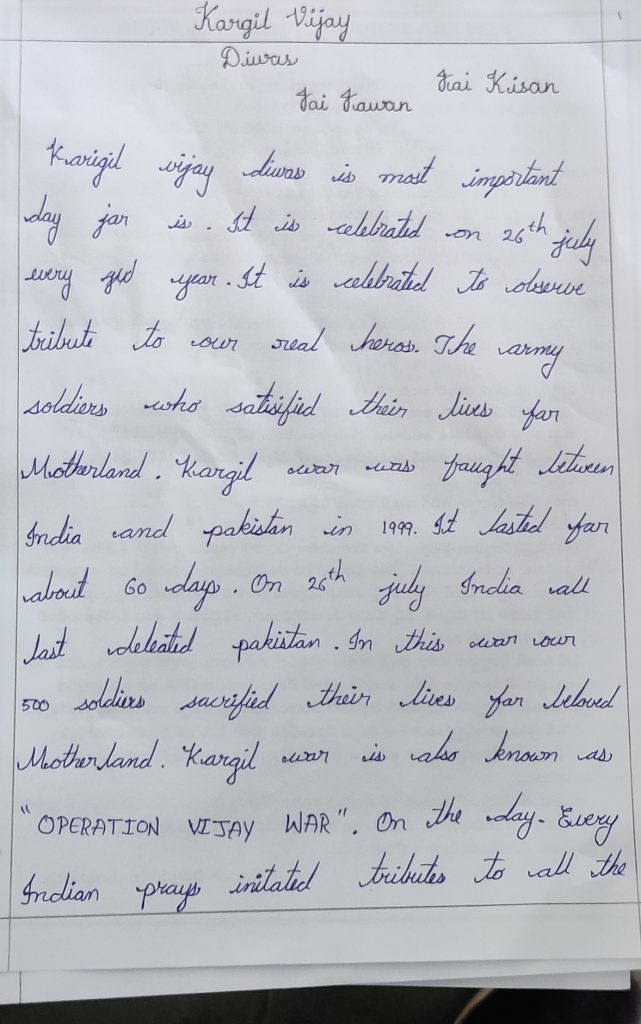 Kargil Vijay
Diwas
Jai Kisan
Jai Jawan
Karigil vijay diwas is most important
day jar is. It is celebrated on 26th july
every year. It is celebrated to observe
tribute to our real heros. The army
soldiers who satisified their lives far
Motherland. Kargil war was faught between
India and pakistan in 1999. It lasted far
about 60 days. On 26th july India all
last deleated pakistan. In this war our
500 soldiers sacrified their lives far beloved
Motherland. Kargil war is also known as
"OPERATION VIJAY WAR". On the day- Every
Indian prays initated tributes to all the